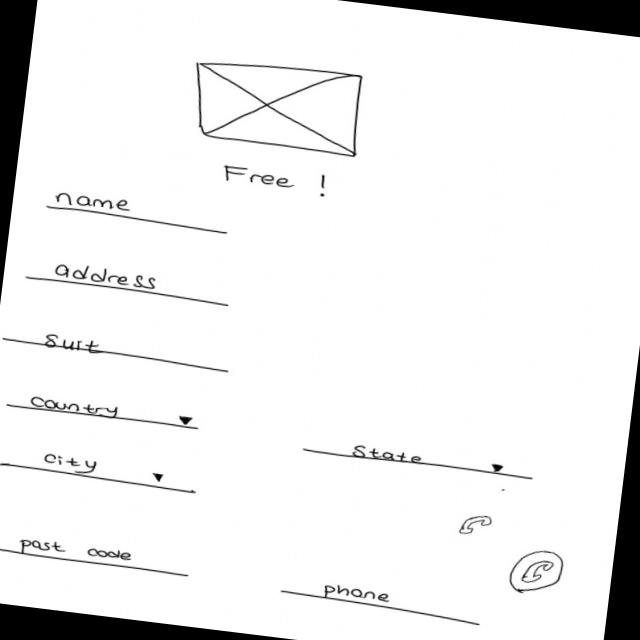 Free !
name
address
suit
country
state
city
post code
phone